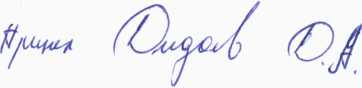 Принял Дидов Д.А.